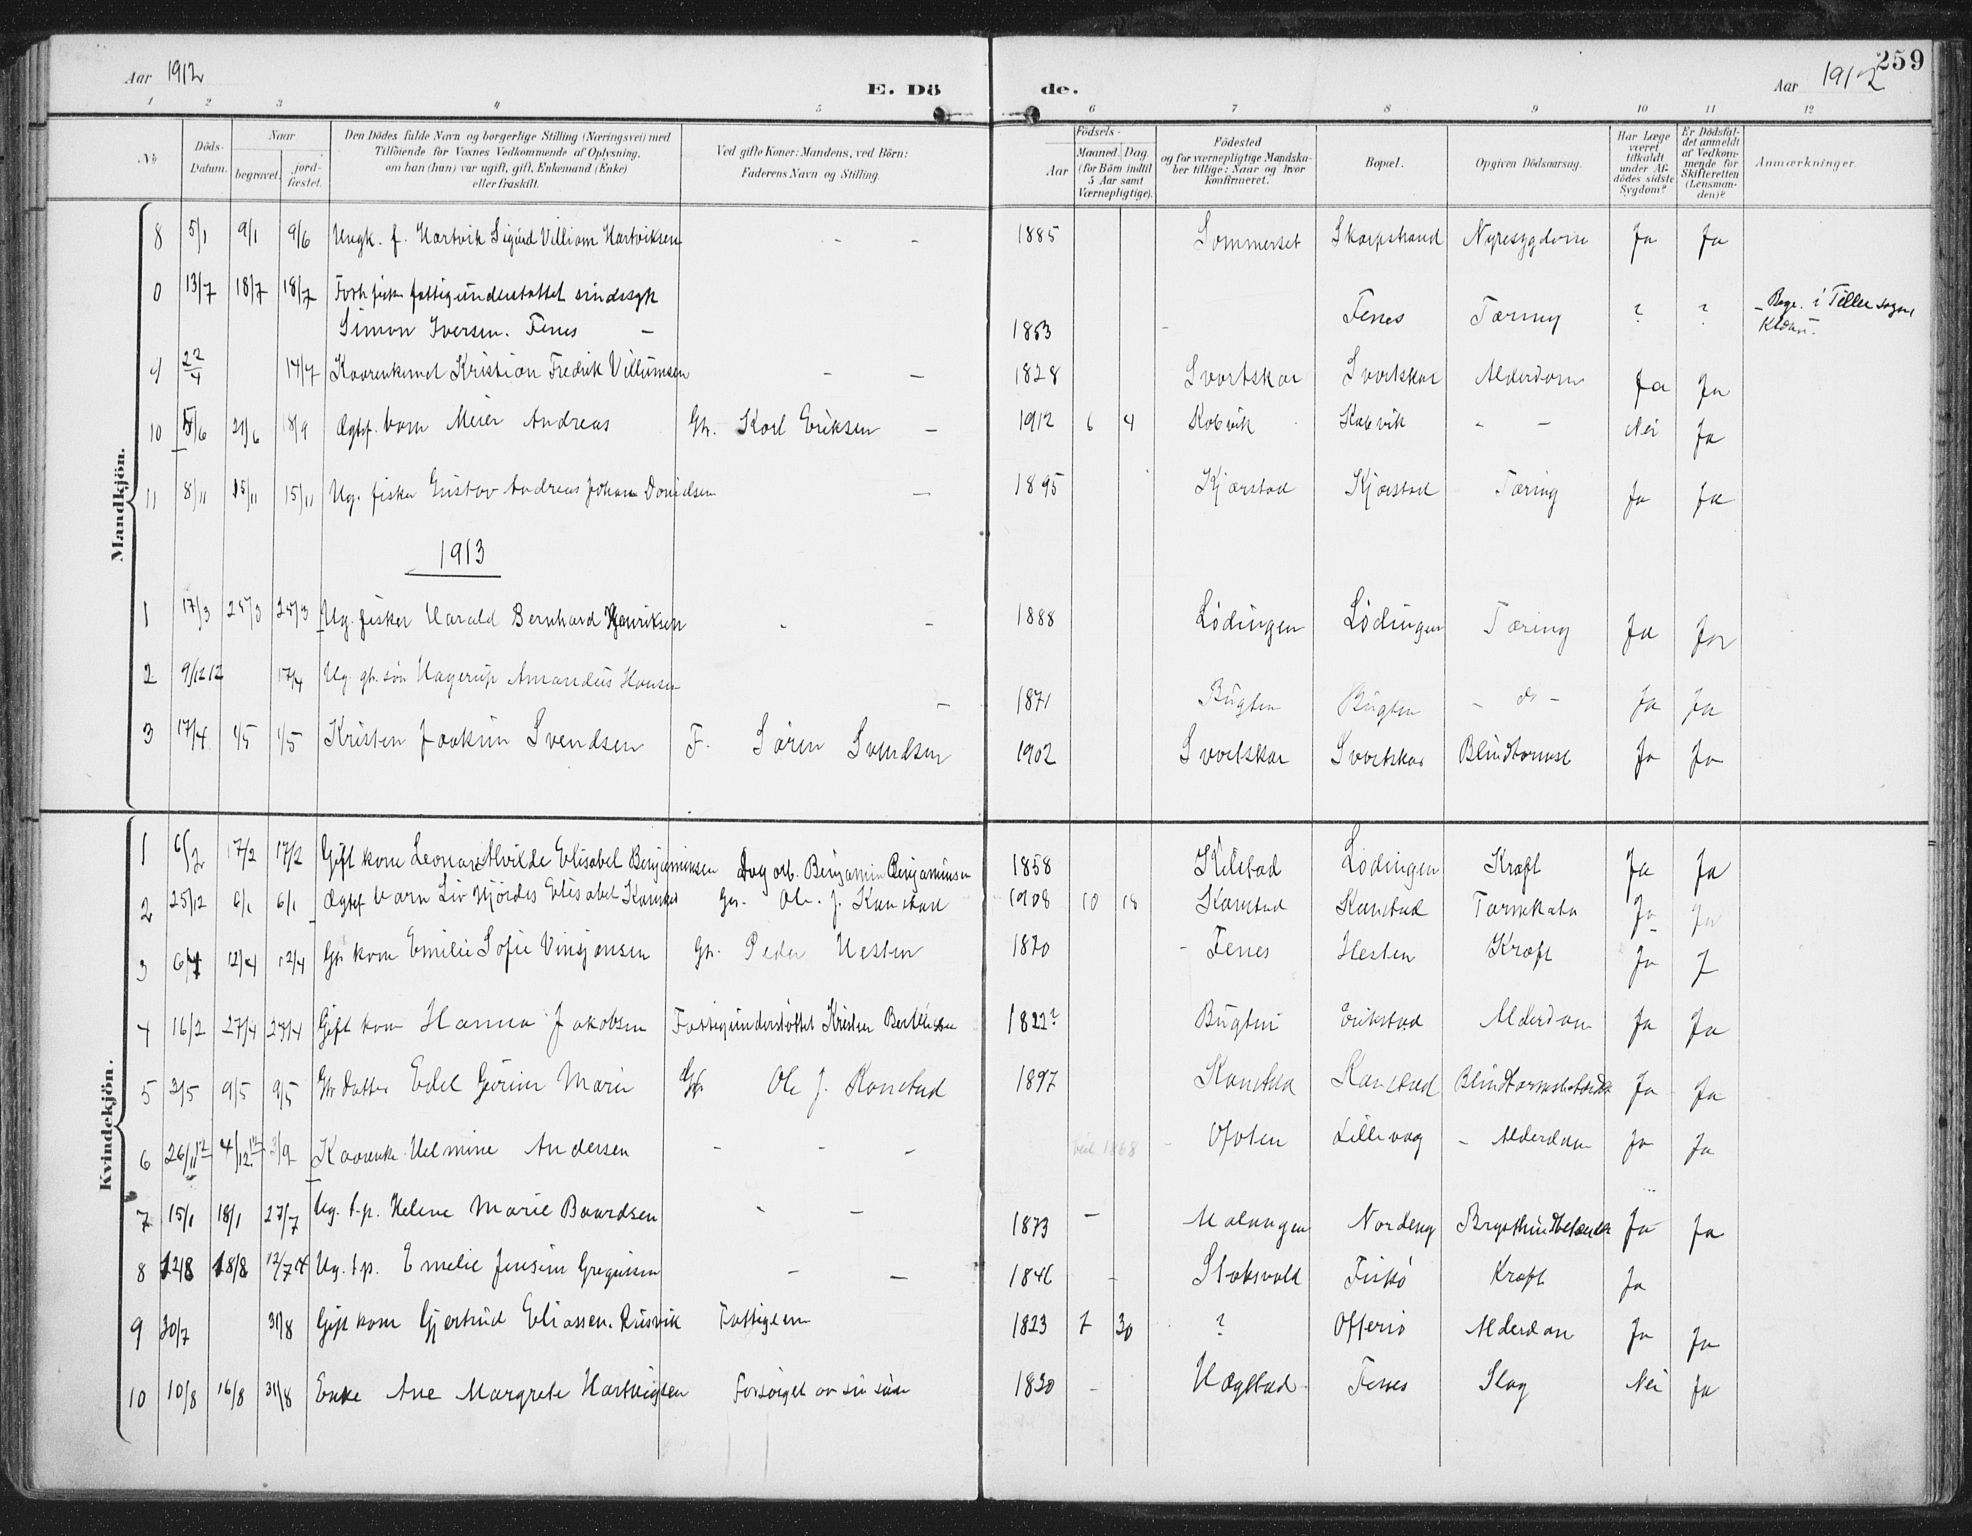 259
Aar 1912 E. Dö de. Aar 1912
1 2 3 4 5 6 7 8 9 10 11 12
No Döds-Datum. Naar begravet. jordfæstet. Den Dödes fulde Navn og borgerlige Stilling (Næringsvei) med Tilföiende for Voxnes Vedkommende af Oplysning, om han (hun) var ugift, gift, Enkemand (Enke) eller fraskilt. Ved gifte Koner: Mandens, ved Börn: Faderens Navn og Stilling. Födsels- Aar Maaned. Dag (for Börn indtil 5 Aar samt Værnepligtige). Födested og for værnepligtige Mandskaber tillige: Naar og hvor konfirmeret. Bopæl. Opgiven Dödsaarsag. Har Læge været tilkaldt under Afdödes sidste Sygdom? Er Dödsfaldet anmeldt af Vedkommende for Skifteretten (Lensmanden)? Anmærkninger.
Mandkjön.
8 5/1 9/1 9/6 Ungk. f. Hartvik Sigurd Villiam Hartviksen - - 1885 Sommerset Skarpstrand Nyresygdom Ja Ja
0 13/7 18/7 18/7 fattigunderstøttet sindssyk
Simon Iversen. Fenes - 1853 - Fenes Tæring ? ? i
22/4 17/7 Kristian Fredrik Villumsen - - 1828 Svortskar Svortskar Alderdom Ja Ja
10 21/6 18/9 Ægtef. barn Meier Andreas Gbr. Karl Eriksen - 1912 6 4 Kobvik Kobvik - - Nei Ja
11 8/11 15/11 15/11 Ug. fisker Gustav Andreas Johan - 1895 Kjærstad Kjærstad Tæring Ja Ja
1913
1 17/3 25/3 25/3 Ug. fisker Harald Bernhard Henriksen - - 1888 Lødingen Lødingen Tæring Ja Ja
2 9/12 12 17/4 Ug. gb. søn Hagerup Amandus Hansen - 1871 Bugten Bugten - do - Ja Ja
3 17/4 1/5 1/5 Kristen Joakim Svendsen F. Sören Svendsen 1902 Svortskar Svortskar Ja Ja
Kvindekjön.
1 6/2 17/2 17/2 Gift kone Alvilde Elisabet Benjaminsen Dag arb. Benjamin Benjaminsen 1858 Lødingen Kræft Ja Ja
2 25/12 6/1 6/1 Ægtef barn Liv Hjördis Elisabet Gbr. Ole J. Kanstad 1908 10 18 Kanstad Kanstad Ja Ja
3 6/4 12/4 12/4 Gb kone Emilie Sofie Gb. Peder Hesten 1870 - Fenes Hesten Kræft Ja J
4 16/2 27/4 Gift kone Hanna Jakobsen Fattigunderstöttet Kristen 1822? Bugten Erikstad Alderdom Ja Ja
5 2/5 9/5 9/5 Gbr datter Edel Marie Gb. Ole J. Kanstad 1897 Kanstad Kanstad Ja Ja
6 26/11 12 4/12 12 3/9 Helmine Andersen - - - 1868 - Ofoten Lillevag - Alderdom Ja Ja
7 15/1 18/1 27/7 Ug. t.p. Helene Marie Baardsen - - 1873 - Malangen Ja Ja
8 12/8 18/8 Ug. t.p. Emelie - - 1846 - Kræft Ja
9 30/7 31/8 Gift kone Gjertrud Eliassen. Rusvik Fattiglem 1823 7 30 ? Offersø Alderdom Ja Ja
10 10/8 16/8 31/8 Enke Ane Margrete Hartvigsen Forsörget av sin sön 1830 - Hægstad Fenes Slag Nei Ja